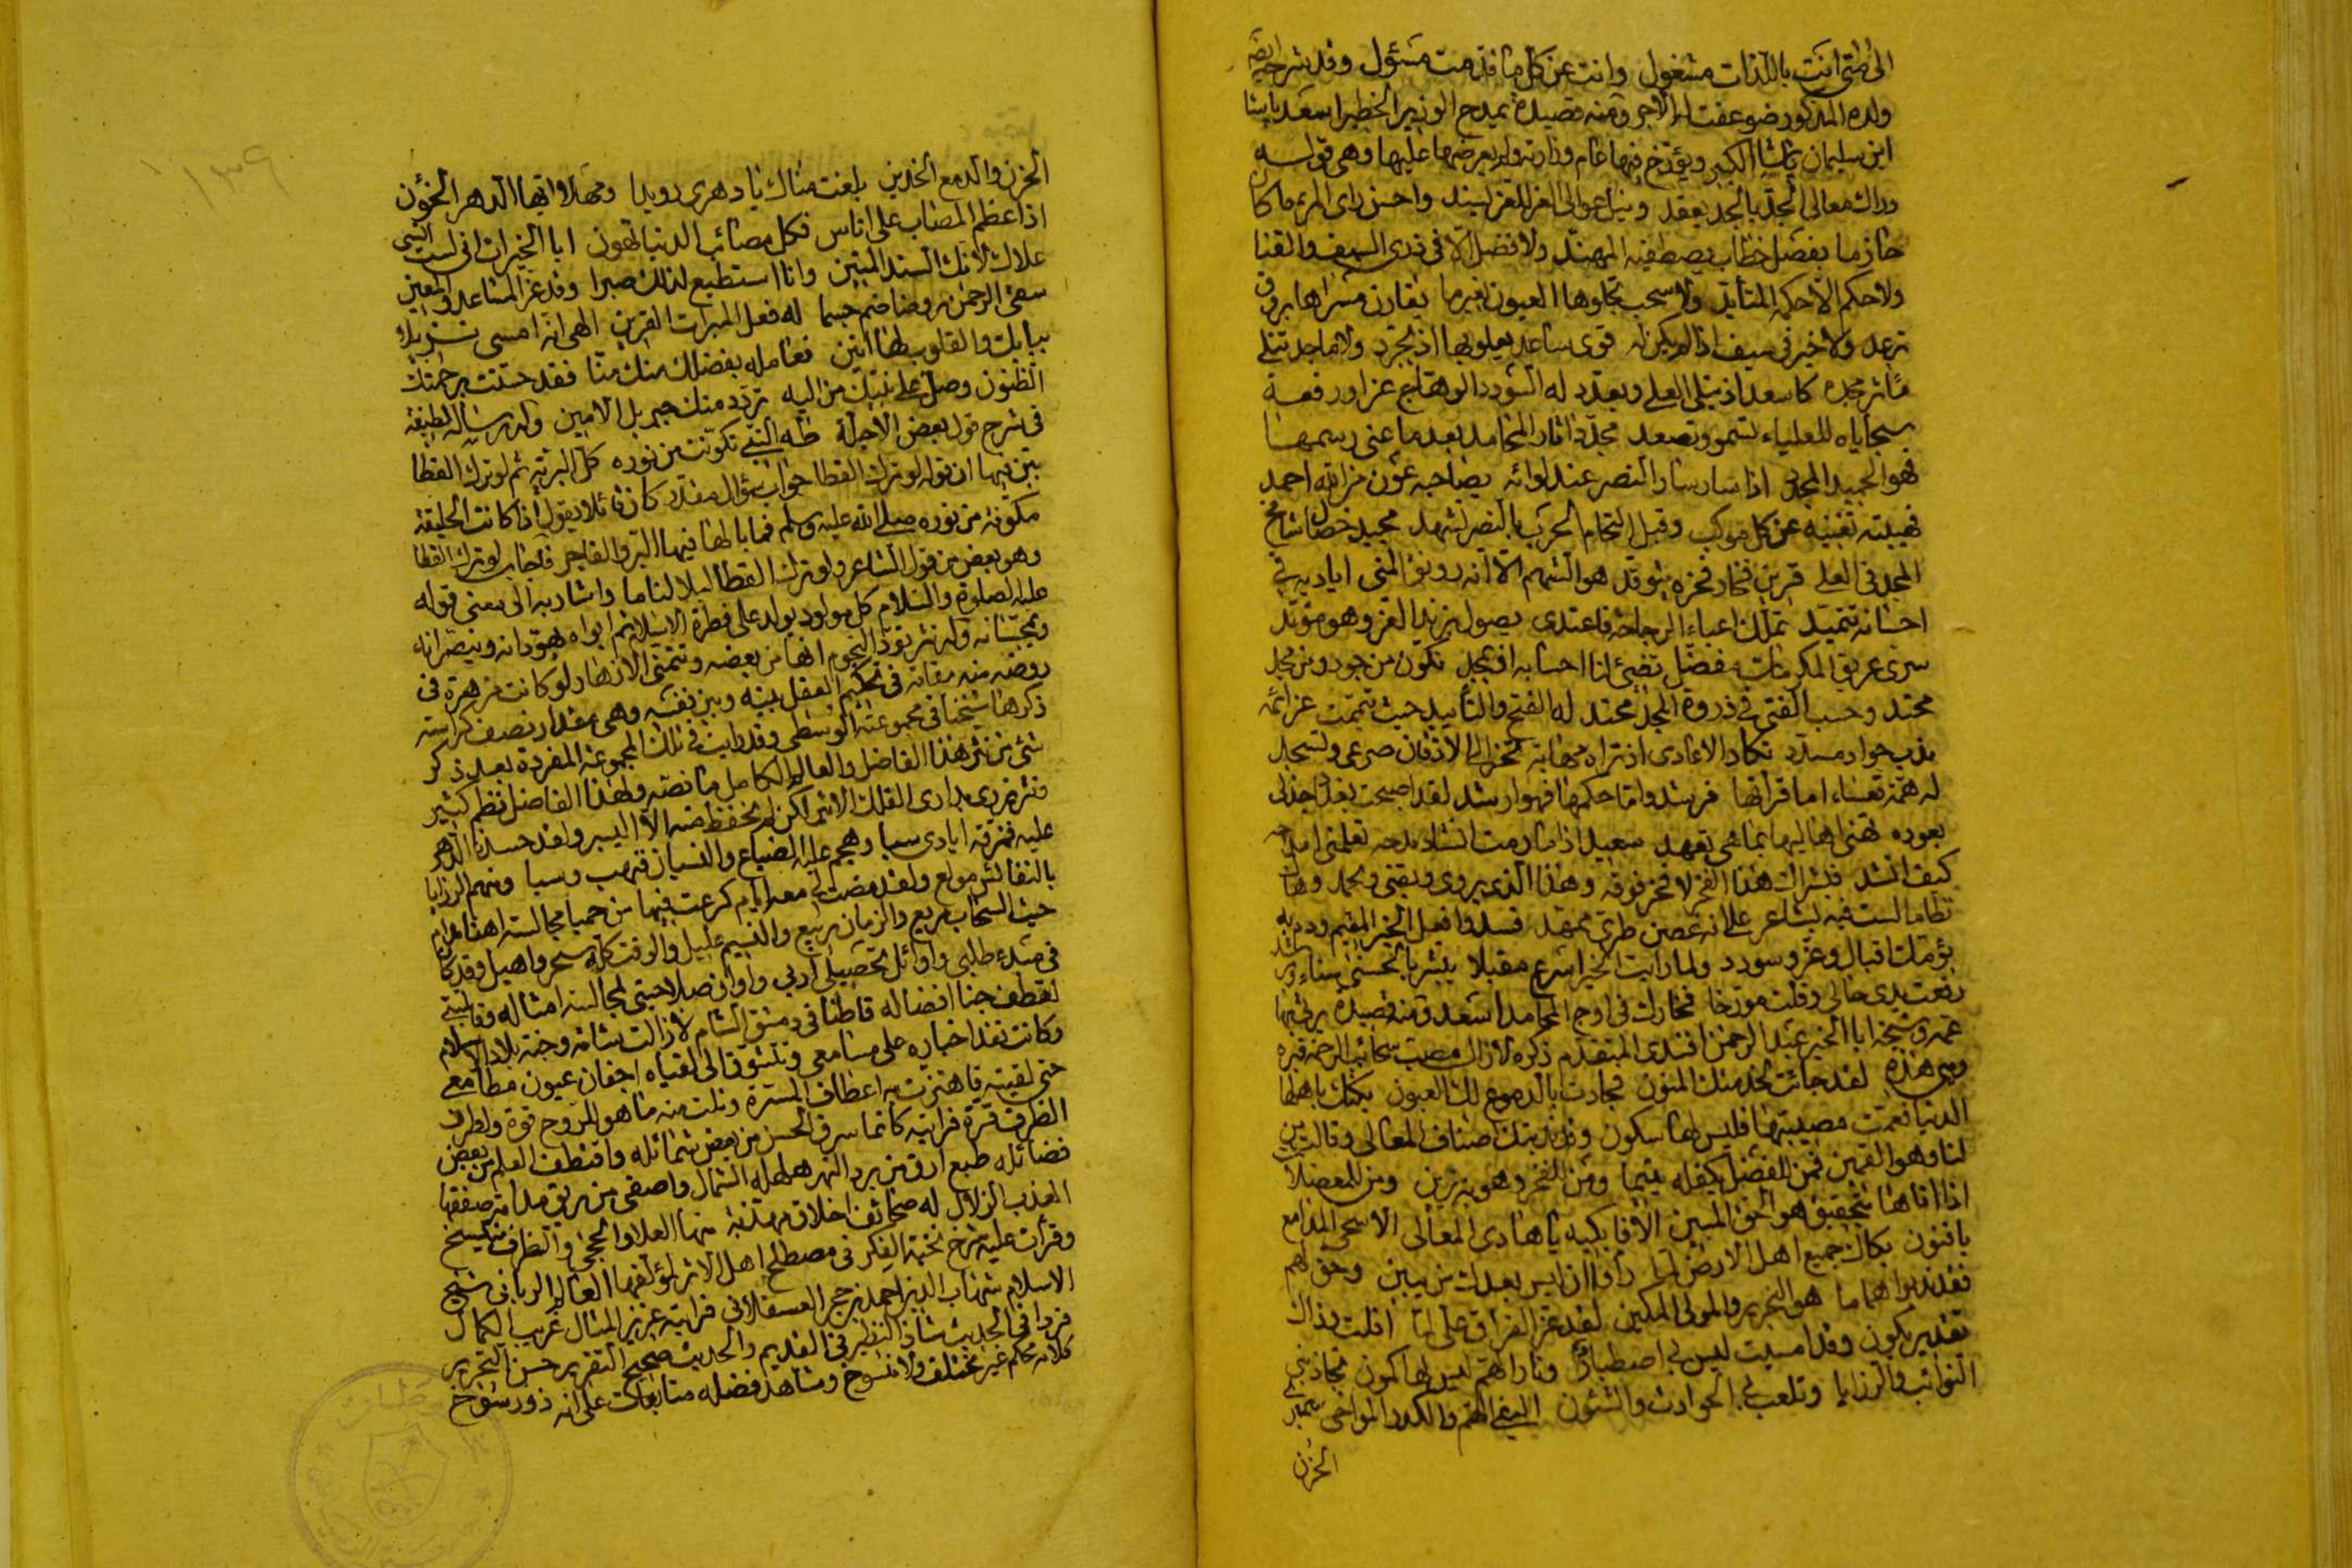 الى متى انت باللذات مشغول وانت عن كل ما قدمت مسؤل وقد شرح ايضا
ولده المذكور ضوعفت له الاجور ومنه قصيدة يمدح الوزير الخطير اسعد باشا
ابن سليمان باشا الكبير ويؤرخ فيها عام وزارته ولم يعرضها عليها وهي قوله
دراك معالى المجد بالجد يعقد ونيل عوالى العز للعز يسند واحسن راى المرء ما كان
حازما بفصل خطاب يصطفيه المهند ولا فضل الا في ذرى السيف والقنا
ولا حكم الا حكمه المتأيد ولا سحب تجلوها العيون لغيرما يقارن مسراها بروق
ترعد ولا خير في سيف اذا لم يكن له قوى ساعد يعلو بها اذ يجرد ولا ماجد تتلى
مآثر مجده كاسعد اذ تتلى العلى وتعدد له السؤدد الوهاج عزا ورفعة
سجاياه للعلياء تسمو وتصعد مجدد اثار المحامد بعد ما عفى رسمها
فهو الحميد المجدد اذا سار سار النصر عند لوائه يصاحبه عون من الله احمد
فهيبته تغنيه عن كل موكب وقبل التحام الحرب بالنصر يشهد مجيد خصال شامخ
المجد في العلى قرين فخار فخره يتوقد هو الشهم الا انه رونق المنى اياديه في
احسانه تتميد تملك اعباء الرجاحة فاعتدى يصول بزند العز وهو مؤيد
سرى عريق المكرمات مفضل تضئ لنا احسابه افتجحد تكون من جود ومن مجد
محتد وحسب الفتى في ذروة المجد محتد له الفتح والتأييد حيث تيممت عزائمه
بذب جواد مسدد تكاد الاعادى اذ تراه مهابة تخر الى الاذقان صرعى وتسجد
له همة قعساء اما قرانها فرشد واما حكمها فهو ارشد لقد اصبحت بغداد جذلى
بعوده تهنى اهاليها بما هي تعهد سعيد اذا ما رمت انشاد مدحه تعلمنى امداحه
كيف انشد فبشراك هذا الفخر لا فخر فوقه وهذا الذى يروى ويقنى ويحمد وهاك
نظاما لست فيه بشاعر على انه غصن طرى ممهد فسد وافعل الخير المقيم ودم به
يؤمك اقبال وعز وسودد ولما رايت الخير اسرع مقبلا يبشر بالحسنى سناء ويرشد
رفعت يدى حالى وقلت مؤرخا فخارك في اوج المحامد اسعد ومنه قصيدة يرثي بها
عمه وشيخه ابا الخير عبد الرحمن افندى المتقدم ذكره لا زال مصبت سحائب الرحمة قبره
وهي هذه لقد جاءت لخدمتك المنون فجادت بالدموع لك العيون بكتك باهلها
الدنيا فعمت مصيبتها فليس لها سكون وقد ندبتك اصناف المعالى وقالت من
لنا وهو القمين فمن للفضل يكفله يتيما ومن للفخر وهو به ترين ومن للمعضلات
اذا اتاها بتحقيق هو الحق المبين الا فابكيه يا هادى المعالى الا سحى المدامع
يا فنون بكاك جميع اهل الارض لما رأوا ان ليس بعدك من يبين وحق لهم
فقد ندبوا هماما هو النحرير والمولى المكين لقد عز الفراق على لما افلت بذاك
تقدير يكون وقد امسيت ليس لى اصطبار ونار الهم ليس لها كمون تجاذبنى
النوائب والرزايا وتلعب بى الحوادث والشئون اليفى الهم والكدر المواخى سميرى
الحزن
١٣٩
الحزن والدمع الخدين بلغت مناك يا دهرى رويدا ومهلا ايها الدهر الخؤن
اذا عظم المصاب على اناس فكل مصائب الدنيا تهون ابا الخيرات انى لست انسى
علاك لانك السند المتين وانا استطيع لذلك صبرا وقد عز المساعد والمعين
سقى الرحمن روضا ضم جسما له فعل المبرات القرين الهى انه امسى نزيلا
ببابك والقلوب لها انين فعامله بفضلك منك منا فقد حسنت برحمتك
الظنون وصل على نبيك من اليه تردد منك جبريل الامين وله رسالة لطيفة
في شرح قول بعض الاجلة طه النبي تكونت من نوره كل البرية ثم لو ترك القطا
بين فيها ان قوله لو ترك القطا جواب سؤال مقدر كان قائلا يقول اذا كانت الخليقة
مكونة من نوره صلى الله عليه وسلم فما بالها فيها البر والفاجر فاجاب لو ترك القطا
وهو بعض من قول الشاعر ولو ترك القطا ليلا لناما واشار به الى معنى قوله
عليه الصلوة والسلام كل مولود يولد على فطرة الاسلام ثم ابواه يهودانه وينصرانه
ويمجسانه وله نثر تود النجوم انها من بعضه وتتمنى الازهار لو كانت مزهرة في
روضه منه مقامة في تحكيم العقل بينه وبين نفسه وهي مقدار نصف كراسة
ذكرها شيخنا في مجموعته الوسطى وقد رايت في تلك المجموعة المفردة بعد ذكر
شئ من نثر هذا الفاضل والعالم الكامل ما نصه ولهذا الفاضل نظم كثير
ونثر يزرى بدارى الفلك الاثير لكن لم يحفظ منه الا اليسير ولقد حسدنا الدهر
عليه فمزقته ايادى سبا وهجم عليه الضياع والنسيان فنهب وسبا وسهم الرزايا
بالنفائس مولع ولقد مضت لى معه ايام كرعت فيها من حميا مجالسته اهنا مدام
حيث السحاب مريع والزمان ربيع والنسيم عليل والوقت كله سحر واصيل وقد كان
في مبتدء طلبي واوائل تحصيلى ادبي واوان صلاحيتى لمجالسة امثاله وقابليتى
لقطف جنا افضاله قاطنا في دمشق الشام لا زالت شامة وجنة بلاد الاسلام
وكانت تفد اخباره على مسامعى وتتشوق الى لقياه اجفان عيون مطامعى
حتى لقيته فاهتزت به اعطاف المسرة ونلت منه ما هو للروح قوة ولطرف
الظرف قرة فرايته كانما سرق الحسن من بعض شمائله واقتطف العلم من بعض
فضائله طبع ارق من برد النهر هلهله الشمال واصفى من ريق مدامة صفقها
العذب الزلال له صحائف اخلاق مهذبة منها العلا والحجى والظرف ينتسخ
وقرأت عليه شرح نخبة الفكر في مصطلح اهل الاثر لمؤلفها العالم الربانى شيخ
الاسلام شهاب الدين احمد بن حجر العسقلانى فرايته عزيز المثال غريب الكمال
فردا في الحديث شاذ النظير في القديم والحديث صحيح التقرير حسن التحرير
كلامه محكم غير مختلف ولا منسوخ ومشاهد فضله متابعات على انه ذو رسوخ